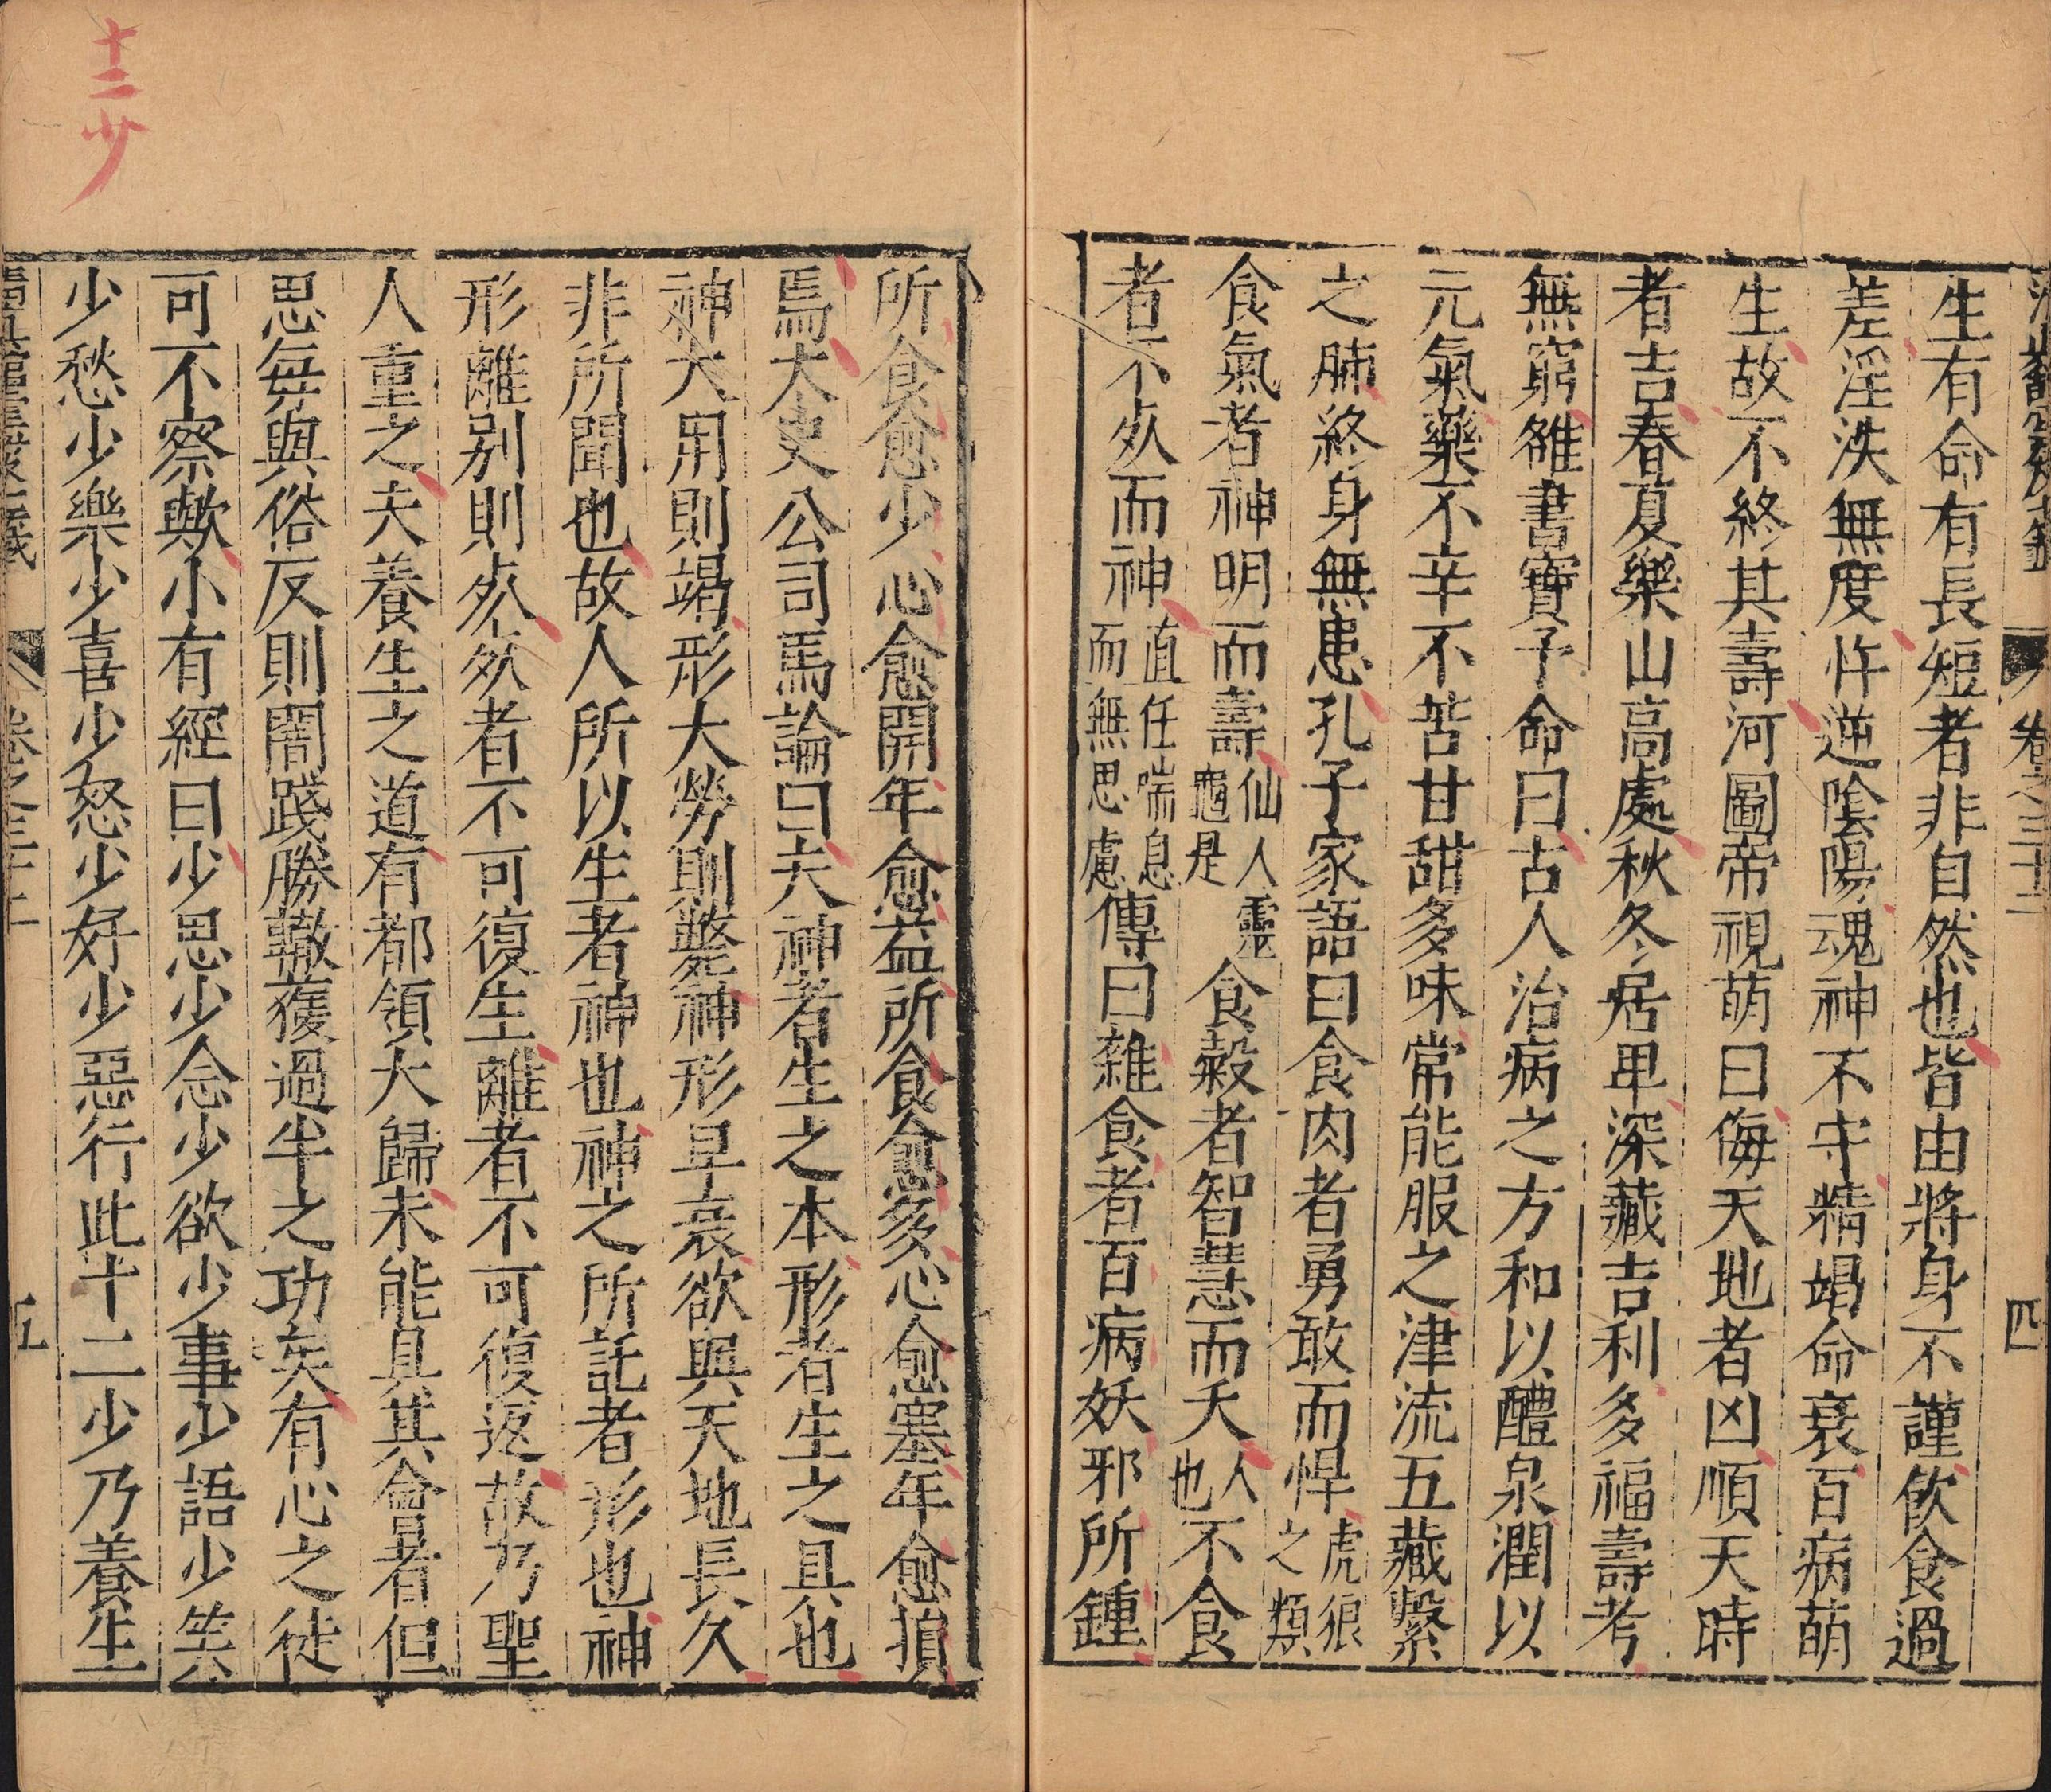 卷之三十二
四
生有命有長短者非自然也皆由將身不謹飲食過
差淫泆無度忤逆陰陽魂神不守精竭命衰百病萌
生故不終其壽河圖帝視萌曰侮天地者凶順天時
者吉春夏樂山高處秋冬居卑深藏吉利多福壽考
無窮雒書寶予命曰古人治病之方和以醴泉潤以
元氣藥不辛不苦甘甜多味常能服之津流五藏繫
之肺終身無患孔子家語曰食肉者勇敢而悍虎狼之類
食氣者神明而壽仙人靈龜是食穀者智慧而夭人也不食
者不死而神直任喘息而無思慮傳曰雜食者百病妖邪所鍾
十二少
所食愈少心愈開年愈益所食愈多心愈塞年愈損
焉太史公司馬論曰夫神者生之本形者生之具也
神大用則竭形大勞則斃神形早衰欲與天地長久
非所聞也故人所以生者神也神之所託者形也神
形離別則死死者不可復生離者不可復返故乃聖
人重之夫養生之道有都領大歸未能具其會者但
思每與俗反則闇踐勝轍獲過半之功矣有心之徒
可不察歟小有經曰少思少念少欲少事少語少笑
少愁少樂少喜少怒少好少惡行此十二少乃養生
五